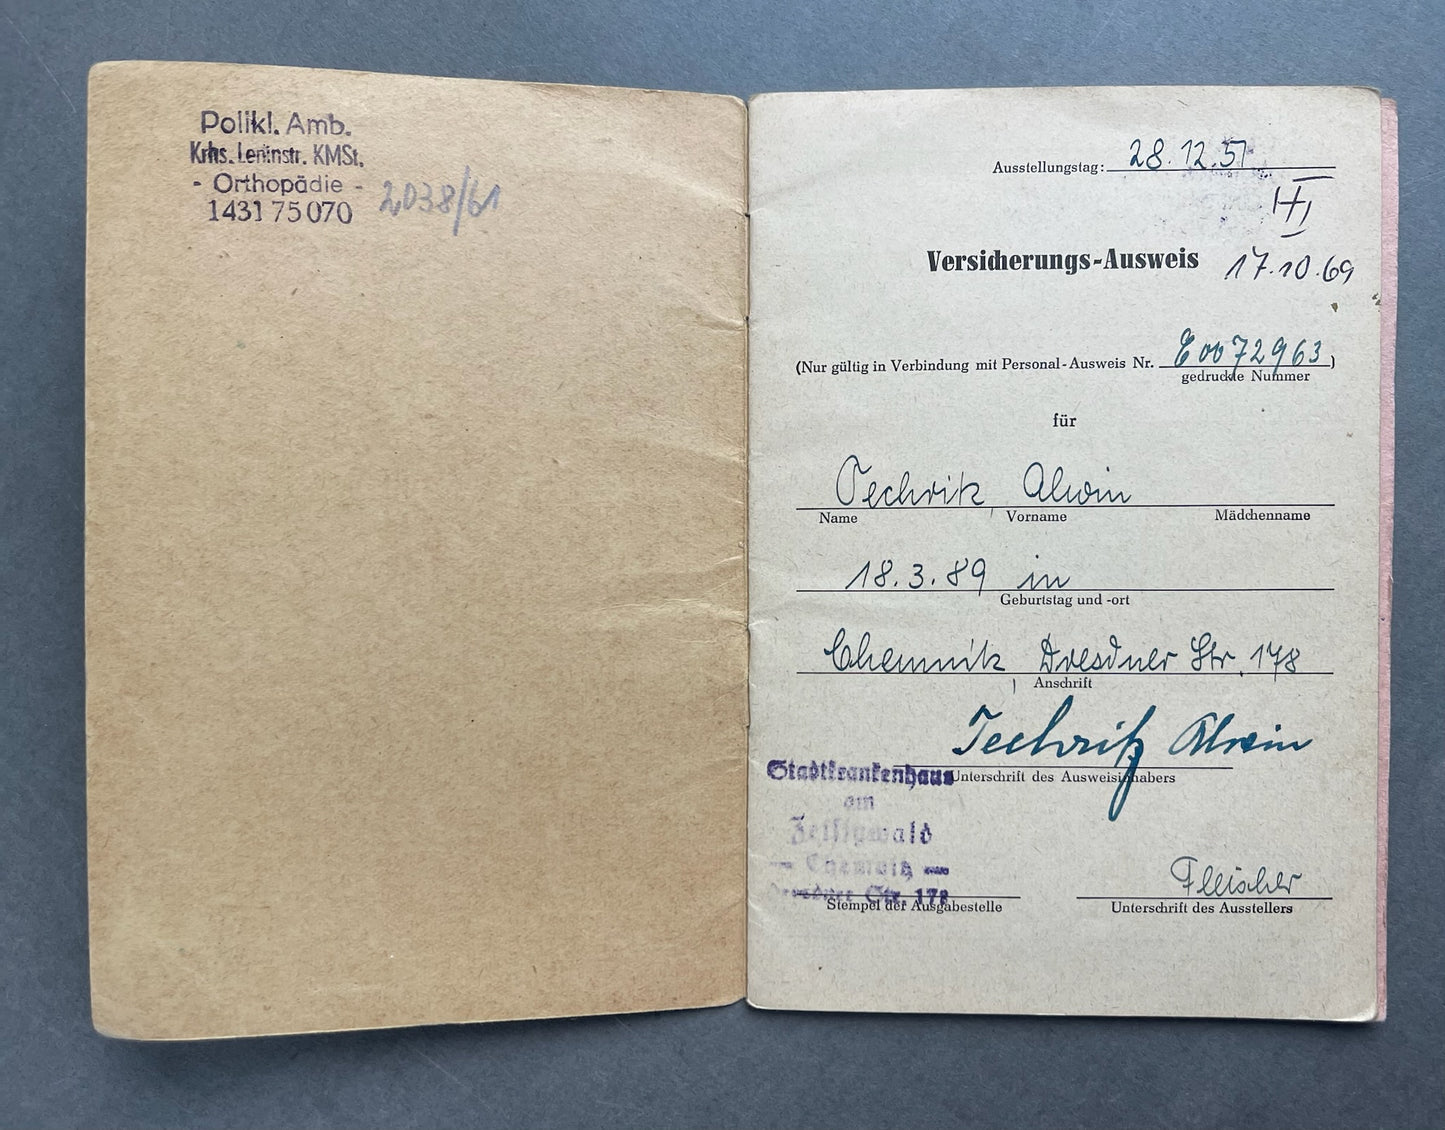 Polikl. Amb.
Krhs. Leninstr. KMSt.
- Orthopädie -
1431 75 070
2038/61
Ausstellungstag: 28.12.51
17.10.69
Versicherungs-Ausweis
(Nur gültig in Verbindung mit Personal-Ausweis Nr. E0072963)
gedruckte Nummer
für
Techritz, Alwin
Name Vorname Mädchenname
18.3.89 in
Geburtstag und -ort
Chemnitz Dresdner Str. 178
Anschrift
Techritz Alwin
Unterschrift des Ausweisinhabers
Stadtkrankenhaus
am
Zeisigwald
— Chemnitz —
Dresdner Str. 178
Stempel der Ausgabestelle
Fleischer
Unterschrift des Ausstellers